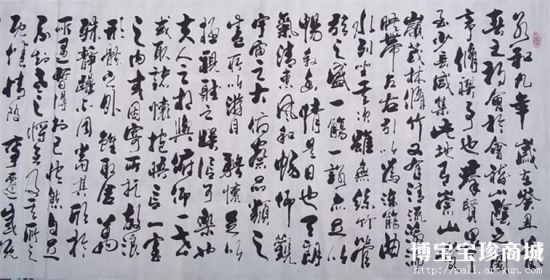 永和九年歲在癸丑暮
春之初會於會稽山陰之蘭
亭脩禊事也群賢畢
至少長咸集此地有崇山峻
嶺茂林脩竹又有清流激湍
映帶左右引以為流觴曲
水列坐其次雖無絲竹管
弦之盛一觴一詠亦足以
暢叙幽情是日也天朗
氣清惠風和暢仰觀
宇宙之大俯察品類之
盛所以遊目騁懷足以
極視聽之娛信可樂也
夫人之相與俯仰一世
或取諸懷抱悟言一室
之内或因寄所托放浪
形骸之外雖取舍萬
殊靜躁不同當其欣於
所遇暫得於己快然自足
不知老之將至及其所之
既惓情隨事遷感慨
博宝宝珍商城
http://mall.artxun.com/